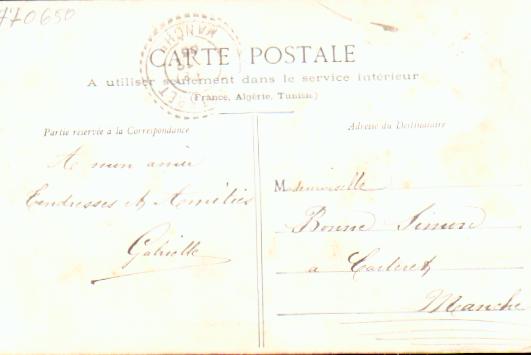 770650
CARTE POSTALE
A utiliser seulement dans le service intérieur
(France, Algérie, Tunisie)
Partie réservée à la Correspondance
Adresse du Destinataire
A mon amie
Tendresses et Amitiés
Gabrielle
Mademoiselle
Bonne Simon
a Carteret
Manche
MANCHE